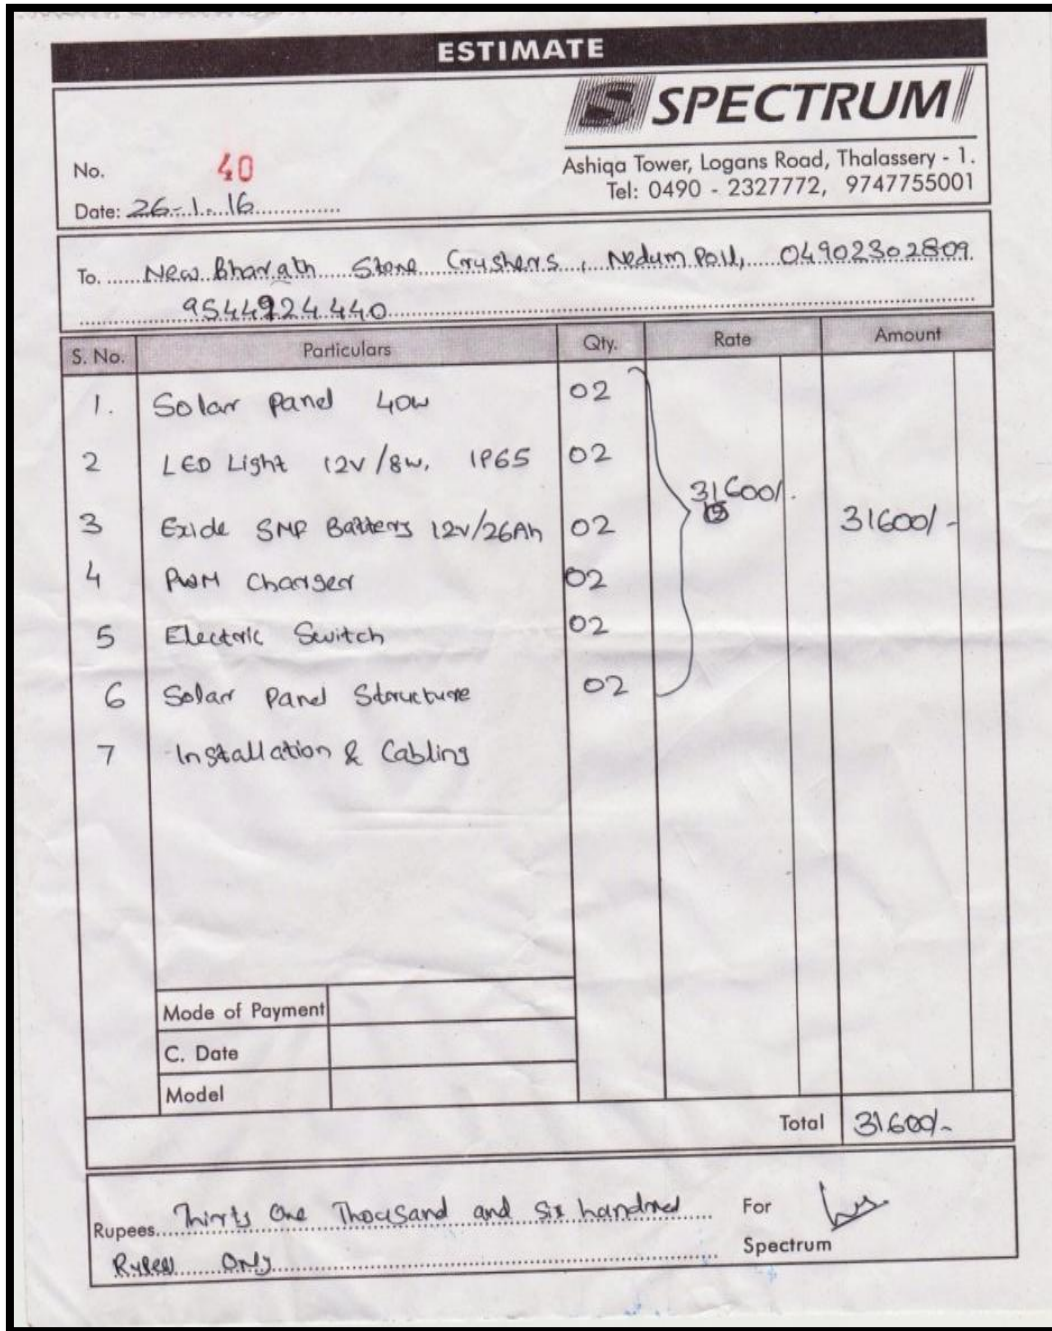 ESTIMATE
SPECTRUM
Ashiqa Tower, Logans Road, Thalassery - 1.
Tel: 0490 - 2327772, 9747755001
No. 40
Date: 26-1-16
To. New Bharath Stone Crushers, Nedumpoil, 04902302809
9544924440
S. No. Particulars Qty. Rate Amount
1. Solar Panel 40w 02
2 LED Light 12v/8w, IP65 02
31600/-
3 Exide SMF Battery 12v/26Ah 02 31600/-
4 PWM Charger 02
5 Electric Switch 02
6 Solar Panel Structure 02
7 Installation & Cabling
Mode of Payment
C. Date
Model
Total 31600/-
Rupees Thirty One Thousand and Six hundred
Rupees Only
For
Spectrum